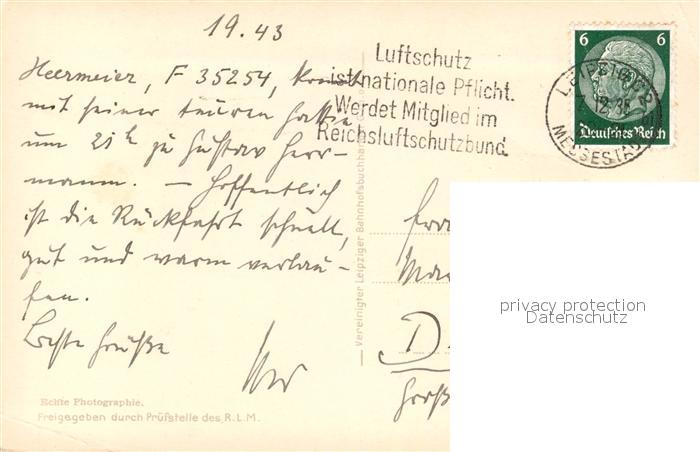 19.43
Heermeier, F 35254, kommt
mit seiner teuren Gattin
um 21h zu Gustav Herr-
mann. – Hoffentlich
ist die Rückfahrt schnell,
gut und warm verlau-
fen.
Beste Grüße
Echte Photographie.
Freigegeben durch Prüfstelle des R.L.M.
Vereinigter Leipziger Bahnhofsbuchhandel
Luftschutz
ist nationale Pflicht.
Werdet Mitglied im
Reichsluftschutzbund.
6 6
Deutsches Reich
LEIPZIG C2
12.35
MESSESTADT
D
privacy protection
Datenschutz